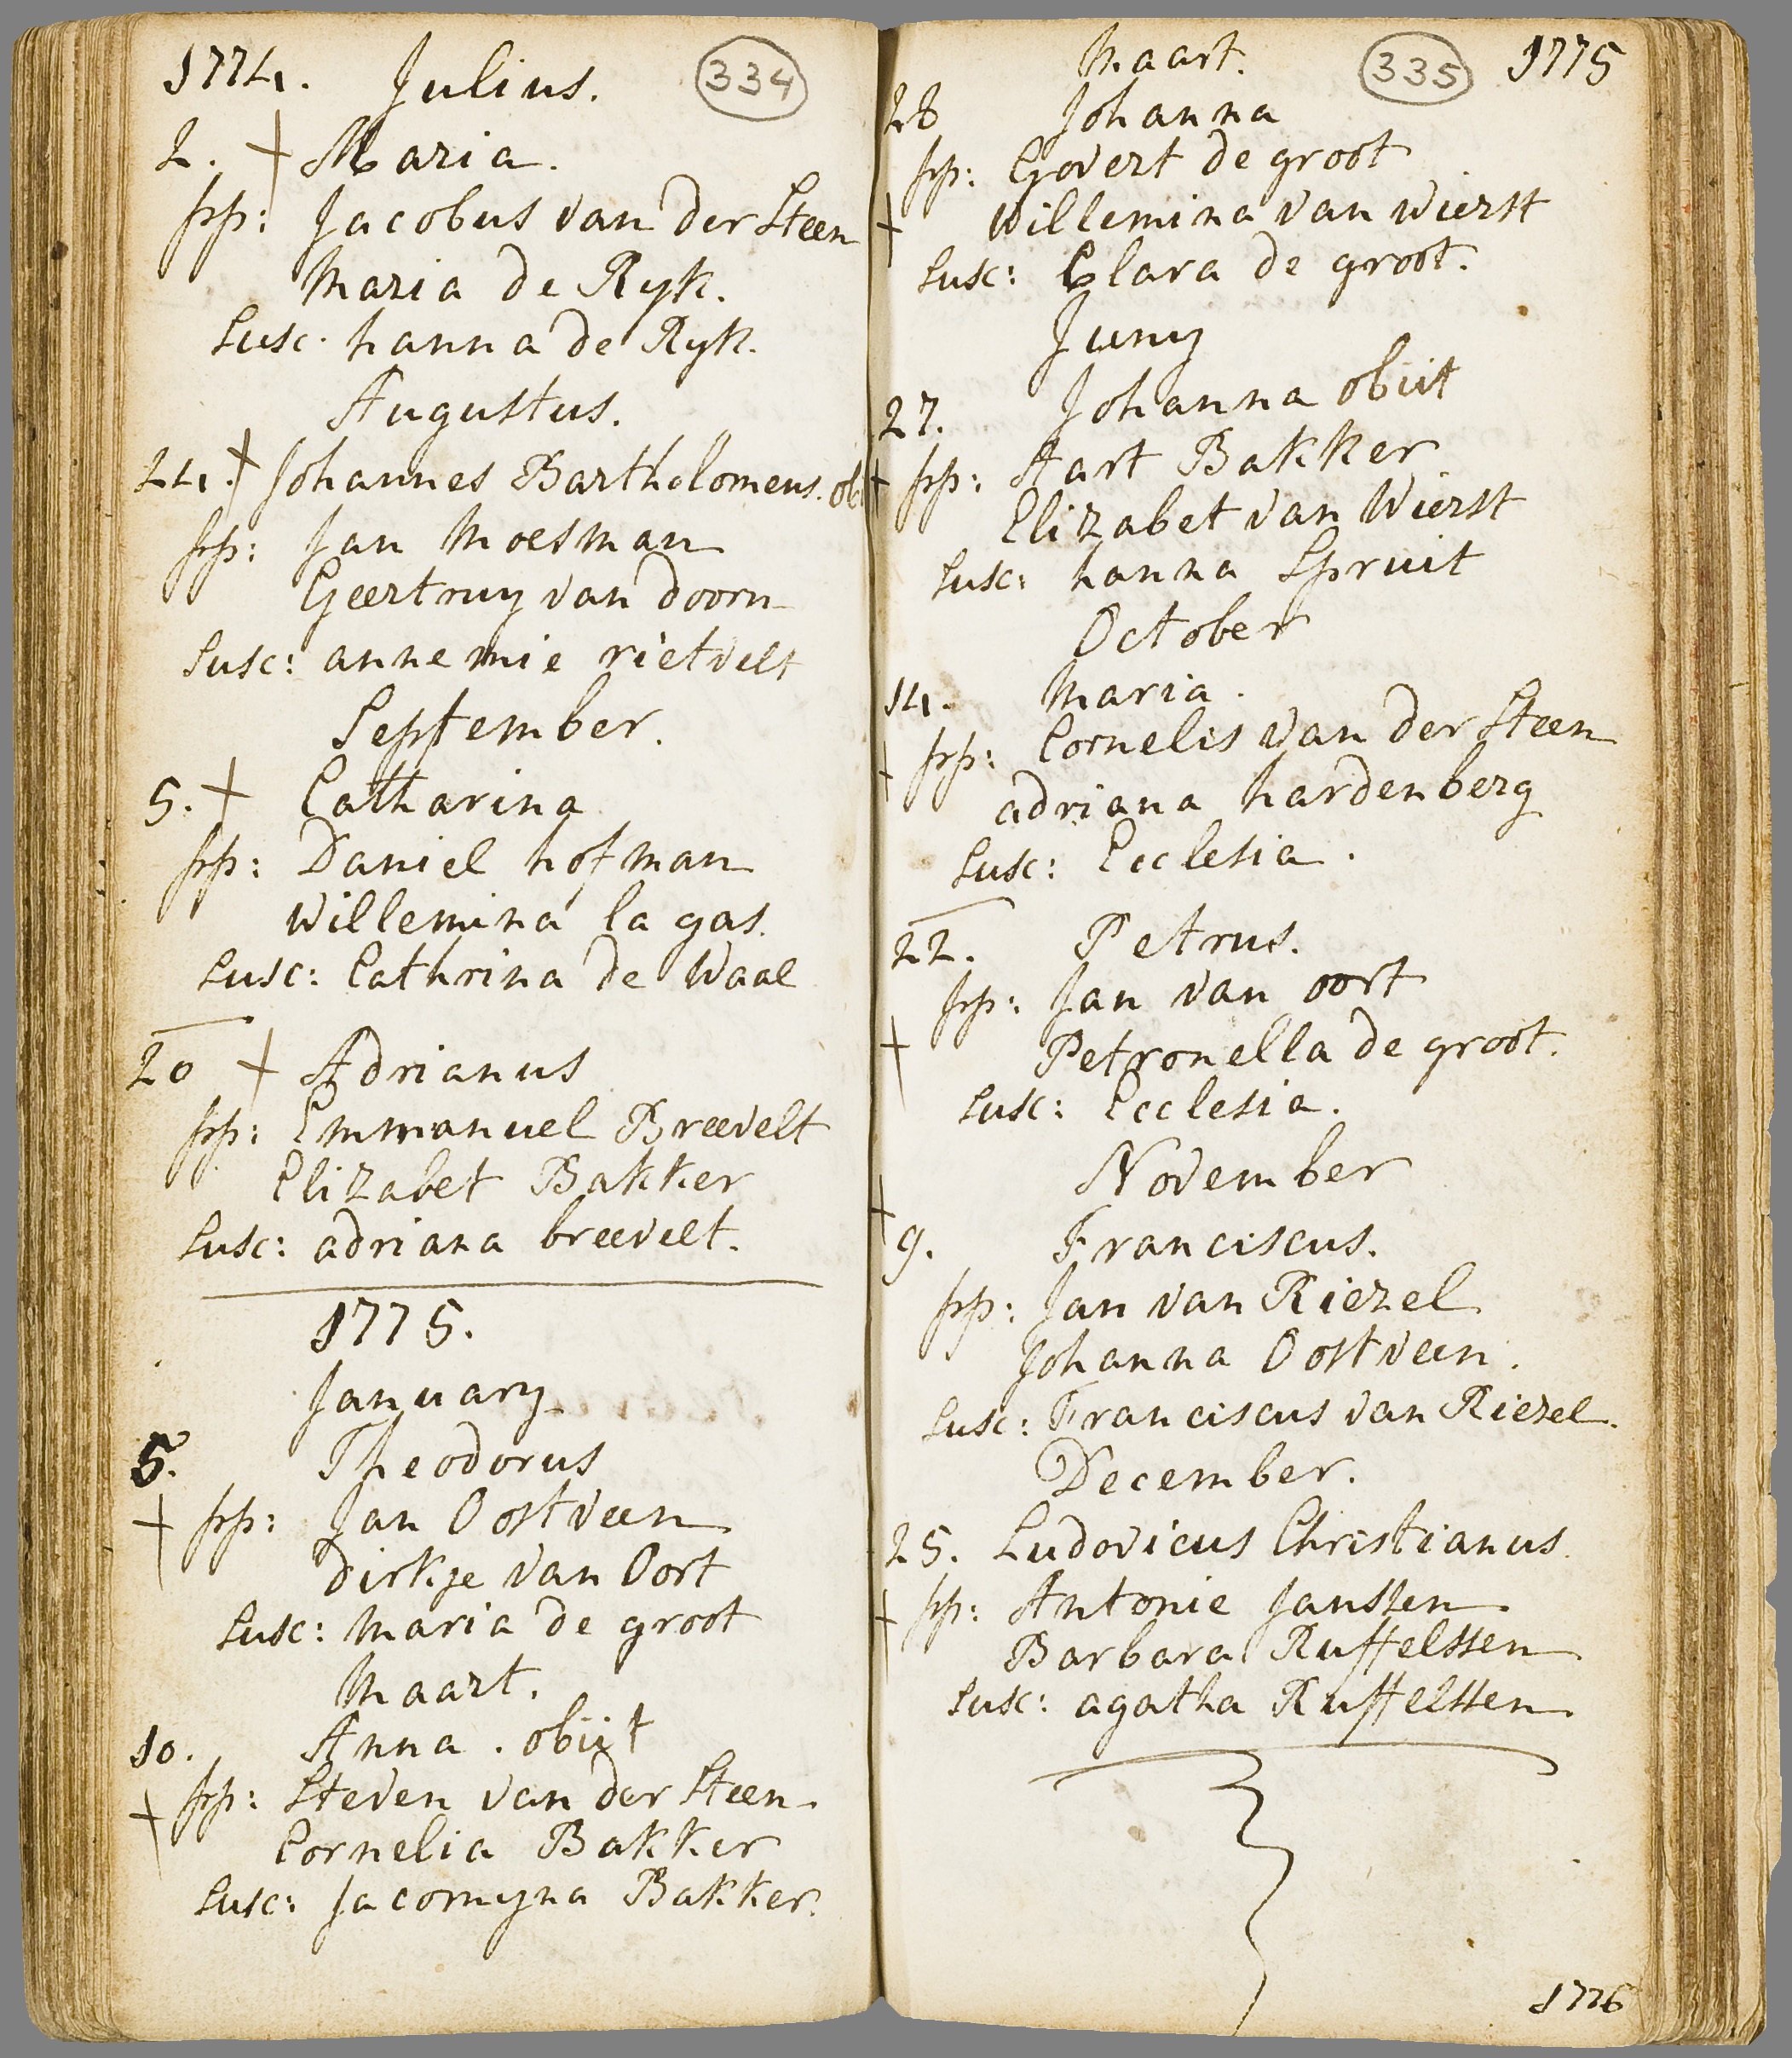 1774. Julius. 334
2. + Maria.
pp: Jacobus van der Steen
Maria de Ryk.
Susc. hanna de Ryk.
Augustus.
24. + Johannes Bartholomeus. ob
pp: Jan Moesman
Geertruy van doorn
Susc: annemie rietvelt
September.
5. + Catharina
pp: Daniel hofman
Willemina la gas.
Susc: Cathrina de Waal
20 + Adrianus
pp: Emmanuel Breevelt
Elizabet Bakker
Susc: adriana breevelt.
1775.
January
5. Theodorus
+ pp: Jan Oostveen
dirkje van Oort
Susc: Maria de groot
Maart.
10. Anna. obiit
+ pp: Steven van der Steen
Cornelia Bakker
Susc: Jacomyna Bakker.
Maart. 335 1775
28 Johanna
pp: Govert de groot
+ Willemina van Wierst
Susc: Clara de groot.
Juny
27. Johanna obiit
+ pp: Aart Bakker
Elizabet van Wierst
Susc: hanna Spruit
October
14. Maria.
+ pp: Cornelis van der Steen
adriana hardenberg
Susc: Ecclesia.
22. Petrus.
pp: Jan van oort
+ Petronella de groot.
Susc: Ecclesia.
November
+ 9. Franciscus.
pp: Jan van Riezel
Johanna Oostveen.
Susc: Franciscus van Riezel.
December.
25. Ludovicus Christianus.
+ pp: Antonie Janssen
Barbara Ruffelssen
Susc: agatha Ruffelssen
1776